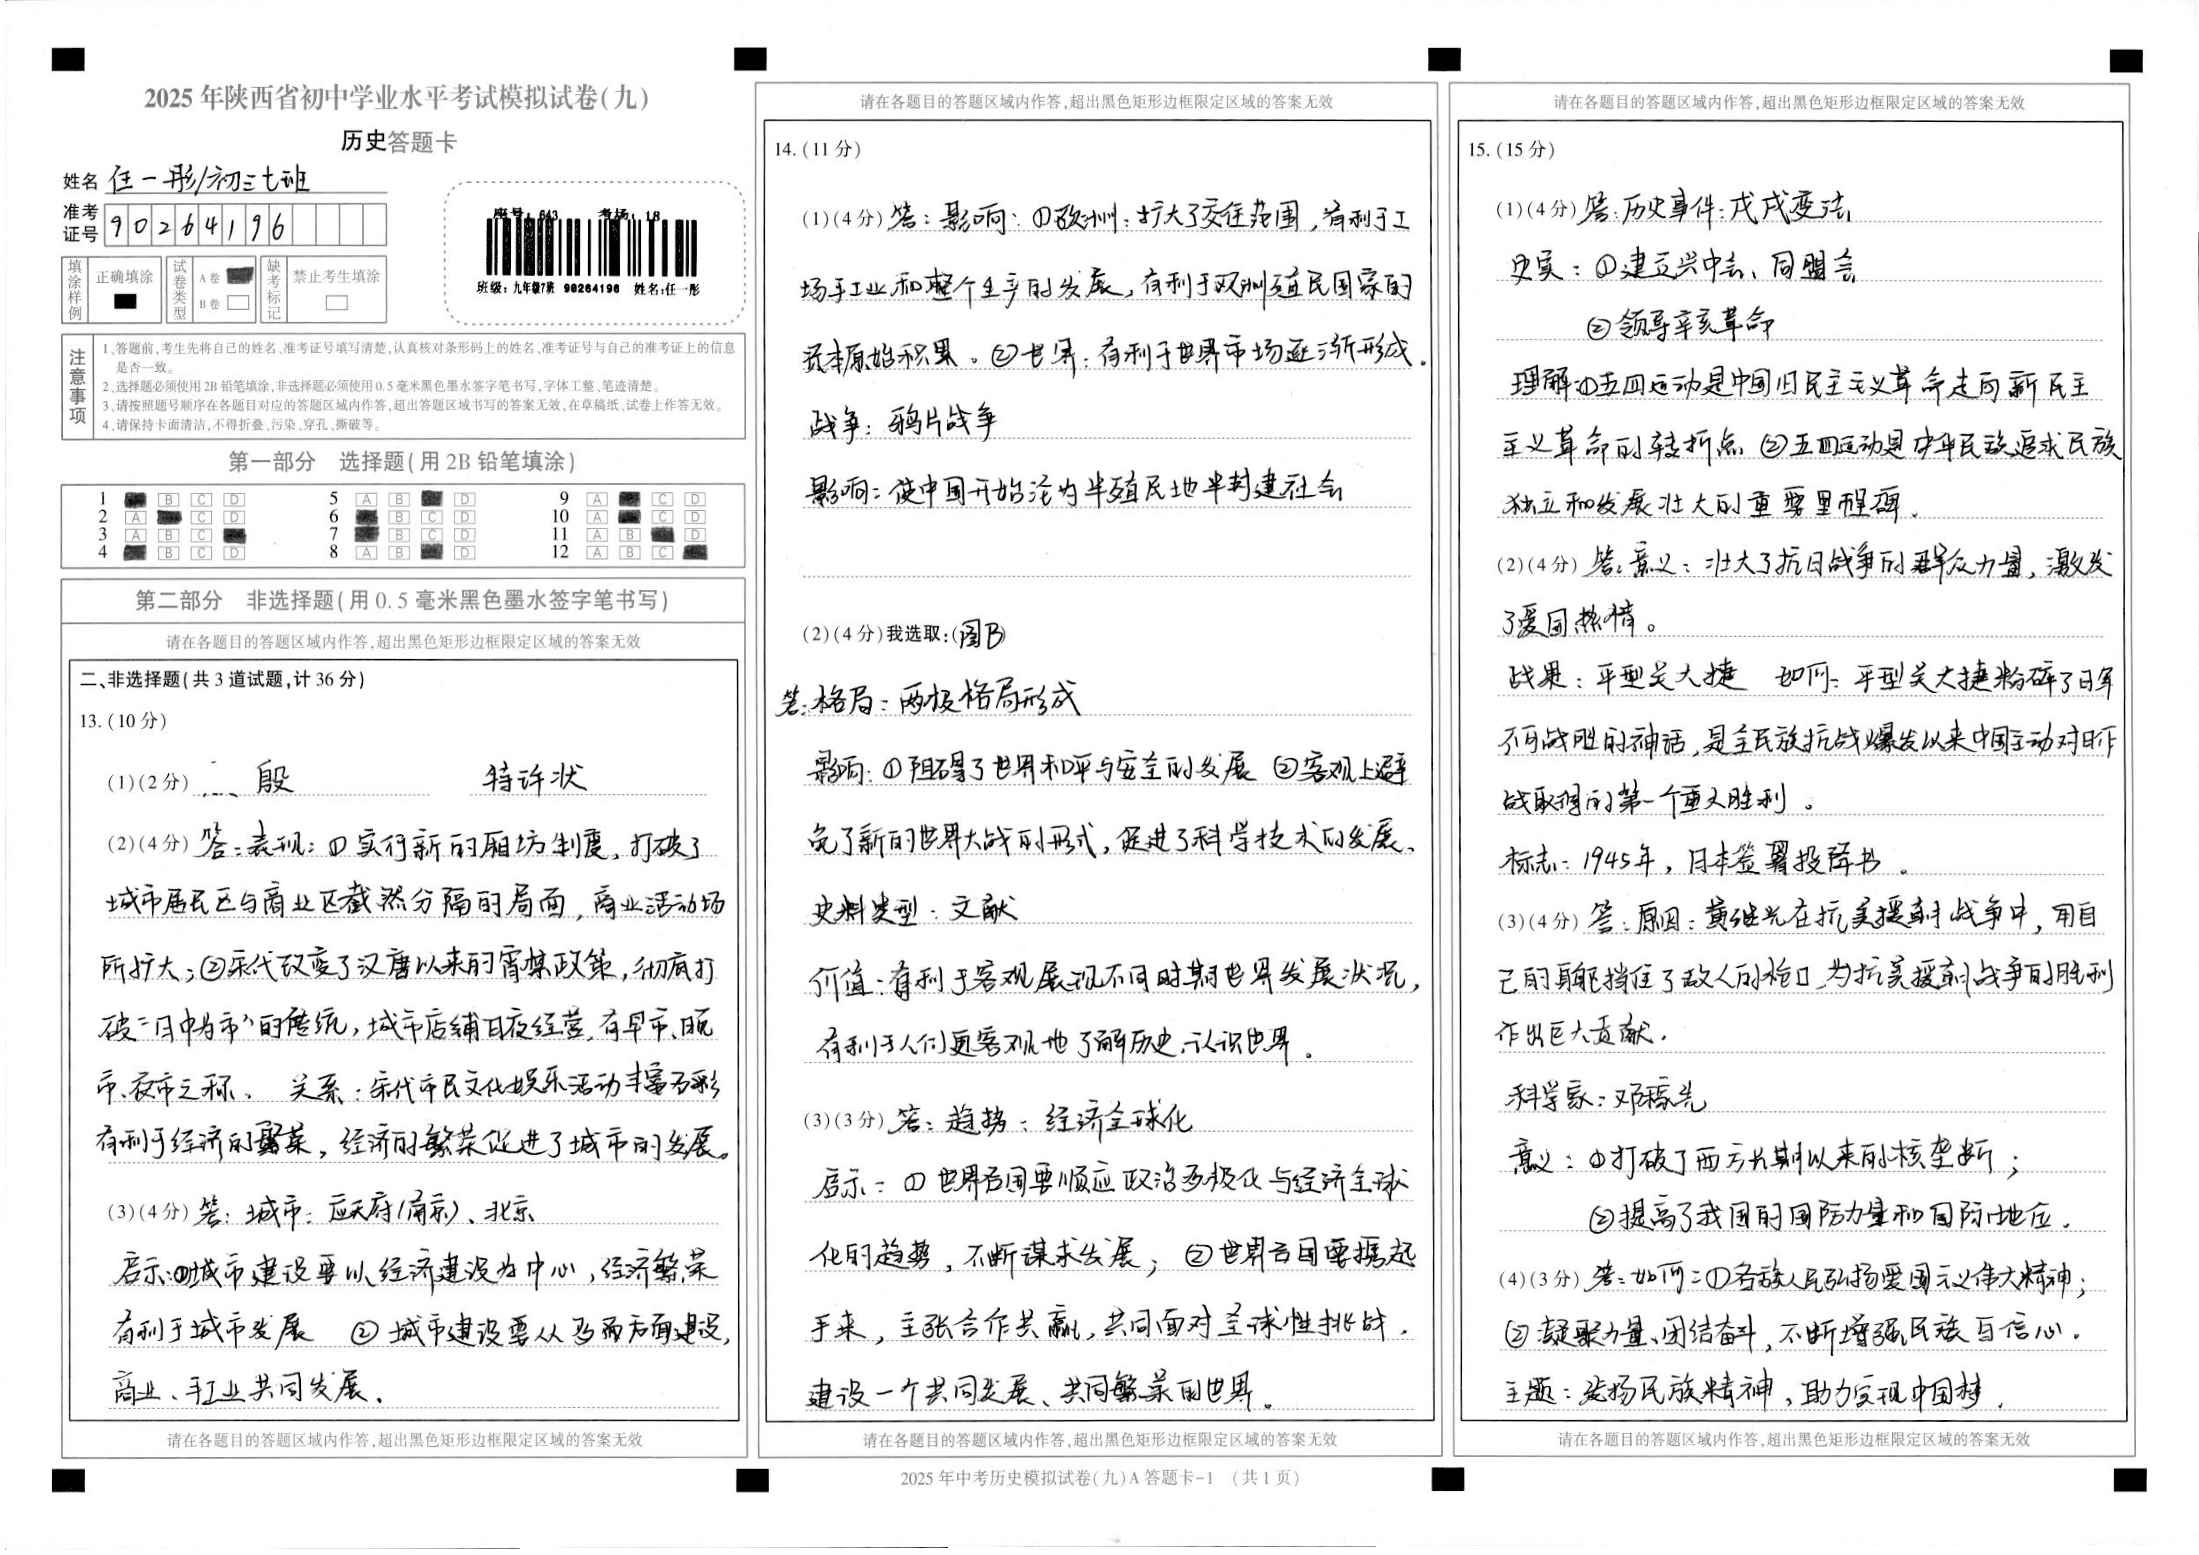 2025年陕西省初中学业水平考试模拟试卷(九)
历史答题卡
姓名 任一彤/初三七班
准考证号 90264196
座号:643 考场:18
班级:九年级7班 90264196 姓名:任一彤
填涂样例 正确填涂 试卷类型 A卷 B卷 缺考标记 禁止考生填涂
注意事项
1.答题前,考生先将自己的姓名、准考证号填写清楚,认真核对条形码上的姓名、准考证号与自己的准考证上的信息
是否一致。
2.选择题必须使用2B铅笔填涂,非选择题必须使用0.5毫米黑色墨水签字笔书写,字体工整、笔迹清楚。
3.请按照题号顺序在各题目对应的答题区域内作答,超出答题区域书写的答案无效,在草稿纸、试卷上作答无效。
4.请保持卡面清洁,不得折叠、污染、穿孔、撕破等。
第一部分 选择题(用2B铅笔填涂)
1 B C D 5 A B D 9 A C D
2 A C D 6 B C D 10 A C D
3 A B C 7 B C D 11 A B D
4 B C D 8 A B D 12 A B C
第二部分 非选择题(用0.5毫米黑色墨水签字笔书写)
请在各题目的答题区域内作答,超出黑色矩形边框限定区域的答案无效
二、非选择题(共3道试题,计36分)
13.(10分)
(1)(2分) 殷 特许状
(2)(4分) 答:表现:①实行新的厢坊制度,打破了
城市居民区与商业区截然分隔的局面,商业活动场
所扩大;②宋代改变了汉唐以来的宵禁政策,彻底打
破“日中为市”的传统,城市店铺日夜经营,有早市、日晚
市、夜市之称。 关系:宋代市民文化娱乐活动丰富多彩
有利于经济的繁荣,经济的繁荣促进了城市的发展。
(3)(4分) 答:城市:应天府(南京)、北京
启示:①城市建设要以经济建设为中心,经济繁荣
有利于城市发展 ②城市建设要从多面方面建设,
商业、手工业共同发展.
请在各题目的答题区域内作答,超出黑色矩形边框限定区域的答案无效
请在各题目的答题区域内作答,超出黑色矩形边框限定区域的答案无效
14.(11分)
(1)(4分) 答:影响:①欧洲:扩大了交往范围,有利于工
场手工业和整个生产的发展,有利于欧洲殖民国家的
资本原始积累。②世界:有利于世界市场逐渐形成.
战争:鸦片战争
影响:使中国开始沦为半殖民地半封建社会
(2)(4分)我选取:(图B)
答:格局:两极格局形成
影响:①阻碍了世界和平与安全的发展 ②客观上避
免了新的世界大战的形式,促进了科学技术的发展、
史料类型:文献
价值:有利于客观展现不同时期世界发展状况,
有利于人们更客观地了解历史、认识世界。
(3)(3分) 答:趋势:经济全球化
启示:①世界各国要顺应政治多极化与经济全球
化的趋势,不断谋求发展;②世界各国要携起
手来,主张合作共赢,共同面对全球性挑战.
建设一个共同发展、共同繁荣的世界。
请在各题目的答题区域内作答,超出黑色矩形边框限定区域的答案无效
2025年中考历史模拟试卷(九)A答题卡-1 (共1页)
请在各题目的答题区域内作答,超出黑色矩形边框限定区域的答案无效
15.(15分)
(1)(4分) 答:历史事件:戊戌变法
史实:①建立兴中会、同盟会
②领导辛亥革命
理解①五四运动是中国旧民主主义革命走向新民主
主义革命的转折点 ②五四运动是中华民族追求民族
独立和发展壮大的重要里程碑.
(2)(4分) 答:意义:壮大了抗日战争的群众力量,激发
了爱国热情。
战果:平型关大捷 如何:平型关大捷粉碎了日军
不可战胜的神话,是全民族抗战爆发以来中国主动对日作
战取得的第一个重大胜利。
标志:1945年,日本签署投降书。
(3)(4分) 答:原因:黄继光在抗美援朝战争中,用自
己的身躯挡住了敌人的枪口,为抗美援朝战争的胜利
作出巨大贡献.
科学家:邓稼先
意义:①打破了西方长期以来的核垄断;
②提高了我国的国防力量和国际地位.
(4)(3分) 答:如何:①各族人民弘扬爱国主义伟大精神;
②凝聚力量、团结奋斗,不断增强民族自信心.
主题:发扬民族精神,助力实现中国梦.
请在各题目的答题区域内作答,超出黑色矩形边框限定区域的答案无效